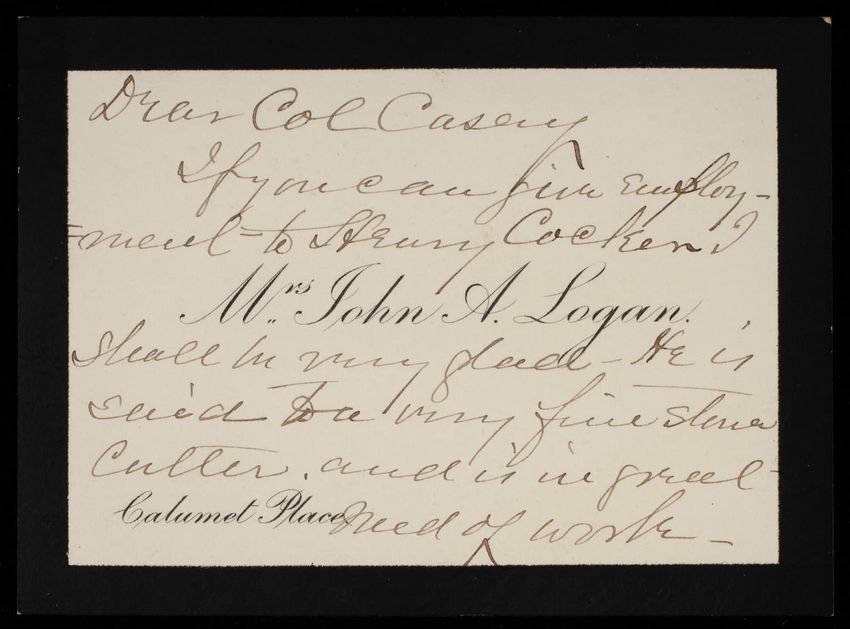 Dear Col Casey
If you can give employ-
=ment=to Henry Cocken I
Mrs John A. Logan.
shall be very glad - He is
said to a very fine stone
cutter. and is in great
Calumet Place need of work -